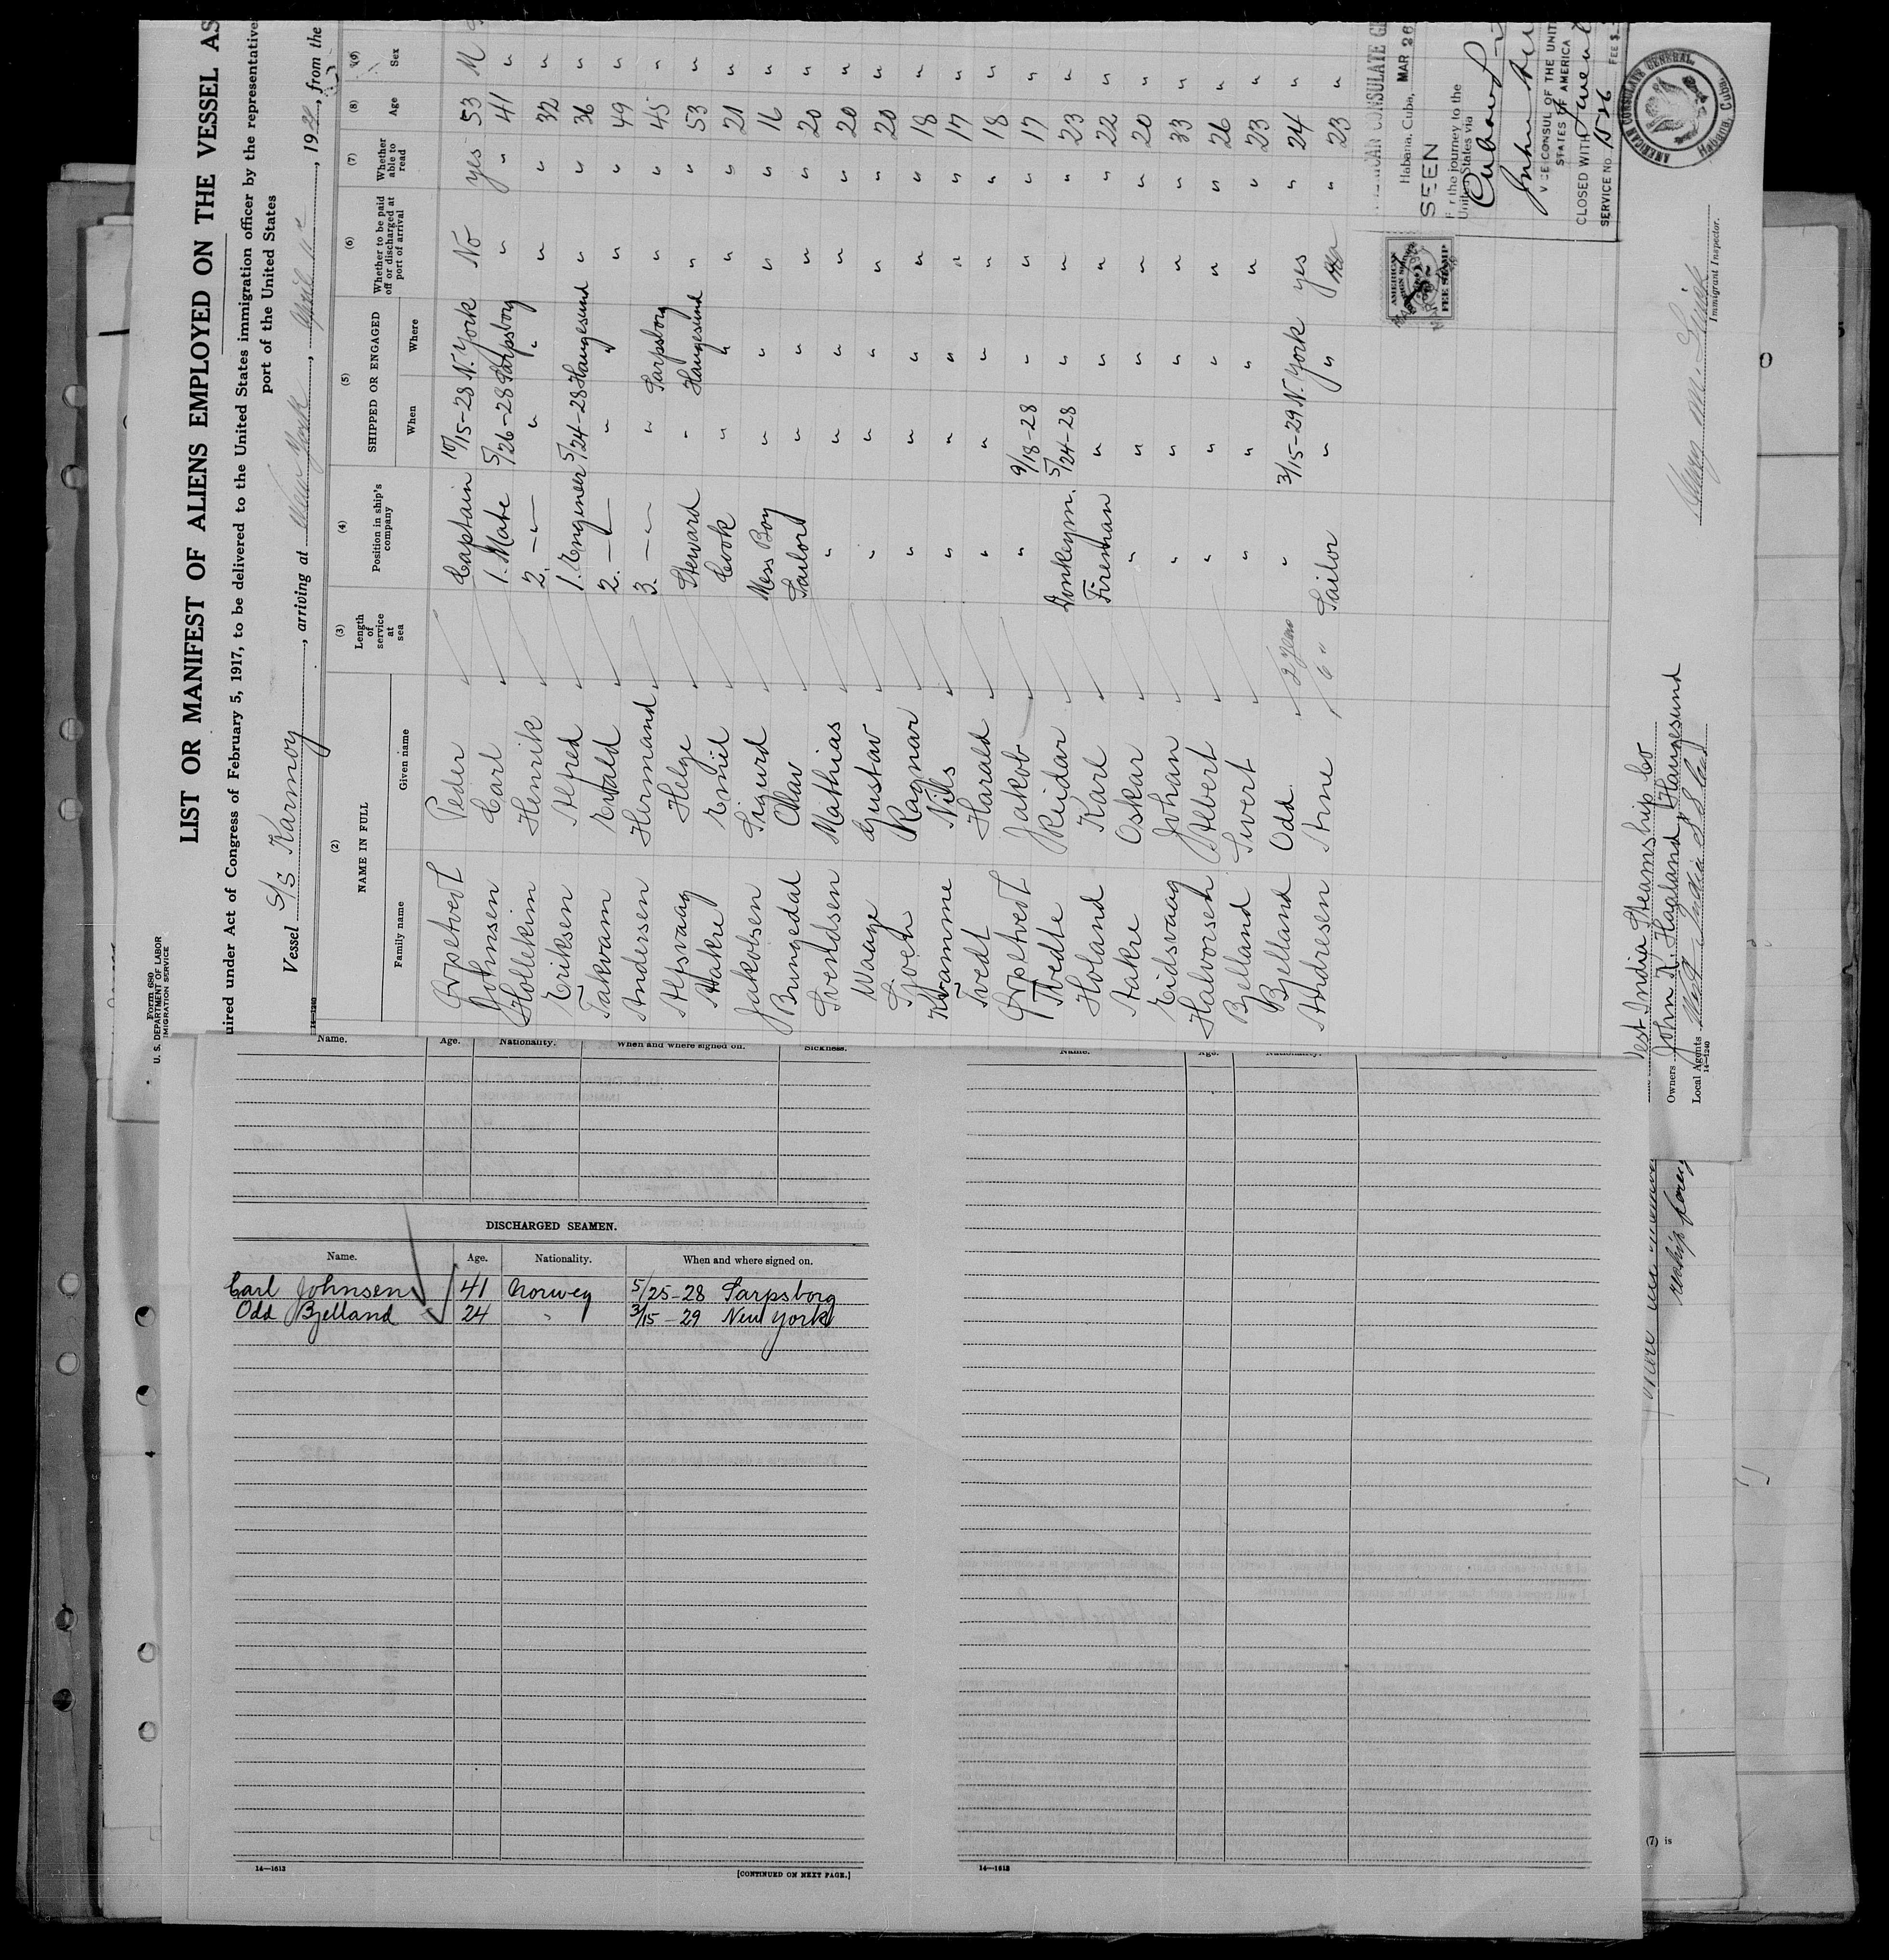 Form 680
U. S. DEPARTMENT OF LABOR
IMMIGRATION SERVICE
LIST OR MANIFEST OF ALIENS EMPLOYED ON THE VESSEL AS
uired under Act of Congress of February 5, 1917, to be delivered to the United States immigration officer by the representative
port of the United States
Vessel S/S Karmoy, arriving at New York, April, 192, from the
(2) (3) (4) (5) (6) (7) (8) (9)
NAME IN FULL Length of service at sea Position in ship's company SHIPPED OR ENGAGED Whether to be paid off or discharged at port of arrival Whether able to read Age Sex
Family name Given name When Where
Johnsen Carl 1. Mate 5/26-28 Sarpsborg " " 41 "
Peder Captain 10/15-28 N. York No yes 53 M
Hollekim Henrik 2. -"- " " " " 32 "
Eriksen Alfred 1. Engineer 5/24-28 Haugesund " " 36 "
Takvam 2. -"- " " " " 49 "
Andersen Hermand 3. -"- " Sarpsborg " " 45 "
Alfsvaag Helge Steward " Haugesund " " 53 "
Aakre Emil Cook " " " " 21 "
Jakobsen Sigurd Mess Boy " " " " 16 "
Bringedal Olav Sailor " " " " 20 "
Svendsen Mathias " " " " " 20 "
Waage Gustav " " " " " 20 "
Ragnar " " " " " 18 "
Kvamme Nils " " " " " 17 "
Tvedt Harald " " " " " 18 "
Jakob " 9/18-28 " " " 17 "
Tvedte Reidar Donkeym. 5/24-28 " " " 23 "
Holand Karl Fireman " " " " 22 "
Aakre Oskar " " " " " 20 "
Eidsvaag Johan " " " " " 33 "
Halvorsen Albert " " " " " 26 "
Bjelland Sivert " " " " " 23 "
Bjelland Odd 2 years " 3/15-29 N. York yes " 24 "
Andresen Arne 6 " Sailor " " " 23 "
AMERICAN CONSULATE GE
Habana, Cuba, MAR 26
SEEN
For the journey to the
United States via
VICE CONSUL OF THE UNIT
STATES OF AMERICA
CLOSED WITH
SERVICE No. 1526 FEE $
AMERICAN
FEE STAMP
AMERICAN CONSULATE GENERAL
Habana, Cuba
Immigrant Inspector.
est India Steamship Co
Owners John K. Haaland, Haugesund
Local Agents West India S S Co
14—1240
Name. Age. Nationality. When and where signed on. Sickness.
DISCHARGED SEAMEN.
Name. Age. Nationality. When and where signed on.
Carl Johnsen 41 Norwey 5/25-28 Sarpsborg
Odd Bjelland 24 " 3/15-29 New York
14—1613
[CONTINUED ON NEXT PAGE.]
Name. Age. Nationality.
14—1613
(7) is